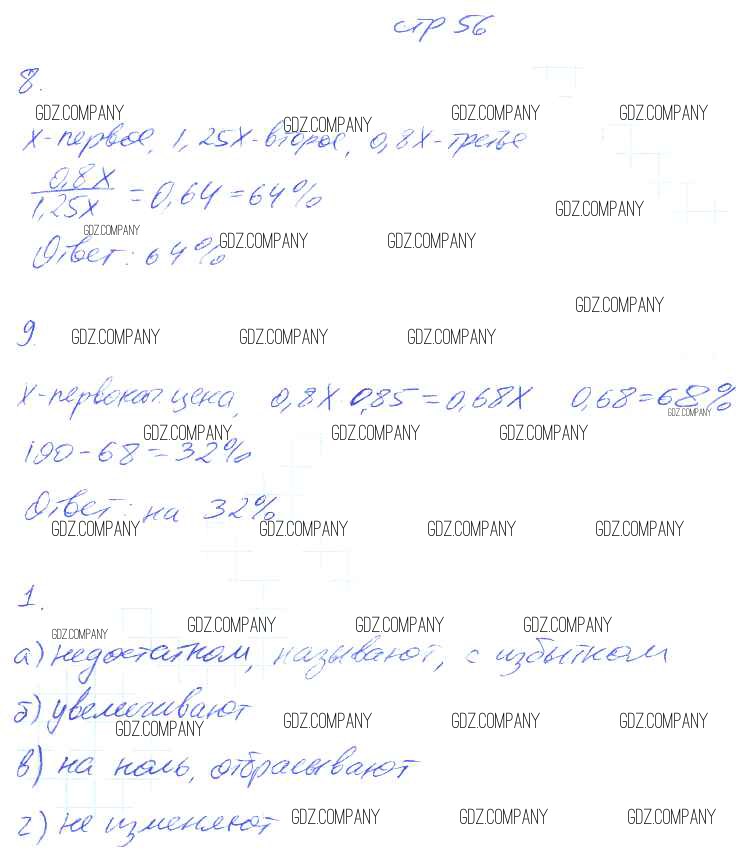 стр 56
8.
GDZ.COMPANY GDZ.COMPANY GDZ.COMPANY GDZ.COMPANY
х-первое, 1,25х-второе, 0,8х-третье
0,8х
1,25х = 0,64 = 64%
GDZ.COMPANY
GDZ.COMPANY GDZ.COMPANY GDZ.COMPANY
Ответ: 64%
GDZ.COMPANY
9. GDZ.COMPANY GDZ.COMPANY GDZ.COMPANY
х-первонач. цена, 0,8х·0,85=0,68х 0,68=68%
GDZ.COMPANY
GDZ.COMPANY GDZ.COMPANY GDZ.COMPANY
100-68=32%
Ответ: на 32%
GDZ.COMPANY GDZ.COMPANY GDZ.COMPANY GDZ.COMPANY
1.
GDZ.COMPANY GDZ.COMPANY GDZ.COMPANY GDZ.COMPANY
а) недостатком, называют, с избытком
б) увеличивают
GDZ.COMPANY GDZ.COMPANY GDZ.COMPANY GDZ.COMPANY
в) на ноль, отбрасывают
г) не изменяют
GDZ.COMPANY GDZ.COMPANY GDZ.COMPANY